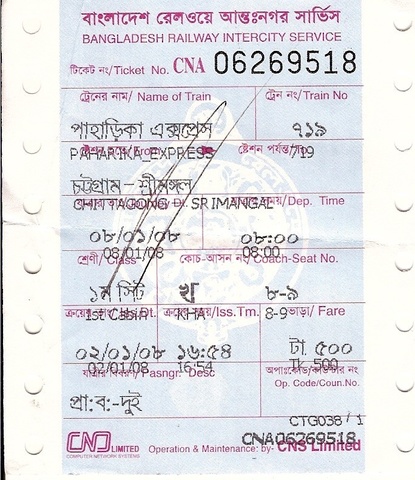 বাংলাদেশ রেলওয়ে আন্তঃনগর সার্ভিস
BANGLADESH RAILWAY INTERCITY SERVICE
টিকেট নং/Ticket No. CNA 06269518
ট্রেনের নাম/ Name of Train ট্রেন নং/Train No
পাহাড়িকা এক্সপ্রেস ৭১৯
ষ্টেশন পর্যন্ত/
PAHARIKA_EXPRESS 719
চট্টগ্রাম - শ্রীমঙ্গল
CHITTAGONG SRIMANGAL /Dep. Time
০৮/০১/০৮ ০৮:০০
08/01/08 08:00
শ্রেণী/ Class কোচ-আসন নং/Coach-Seat No.
১ম সিট খ ৮-৯
/Iss.Dt. /Iss.Tm. ভাড়া/ Fare
KHA 8-9
০২/০১/০৮ ১৬:৫৪ টা. ৫০০
02/01/08 16:54 Tk. 500
/Pasngr. Desc
Op. Code/Coun.No.
প্রা:ব:-দুই
CTG038 / 1
CNA06269518
CNS LIMITED
COMPUTER NETWORK SYSTEMS
Operation & Maintenance: by- CNS Limited